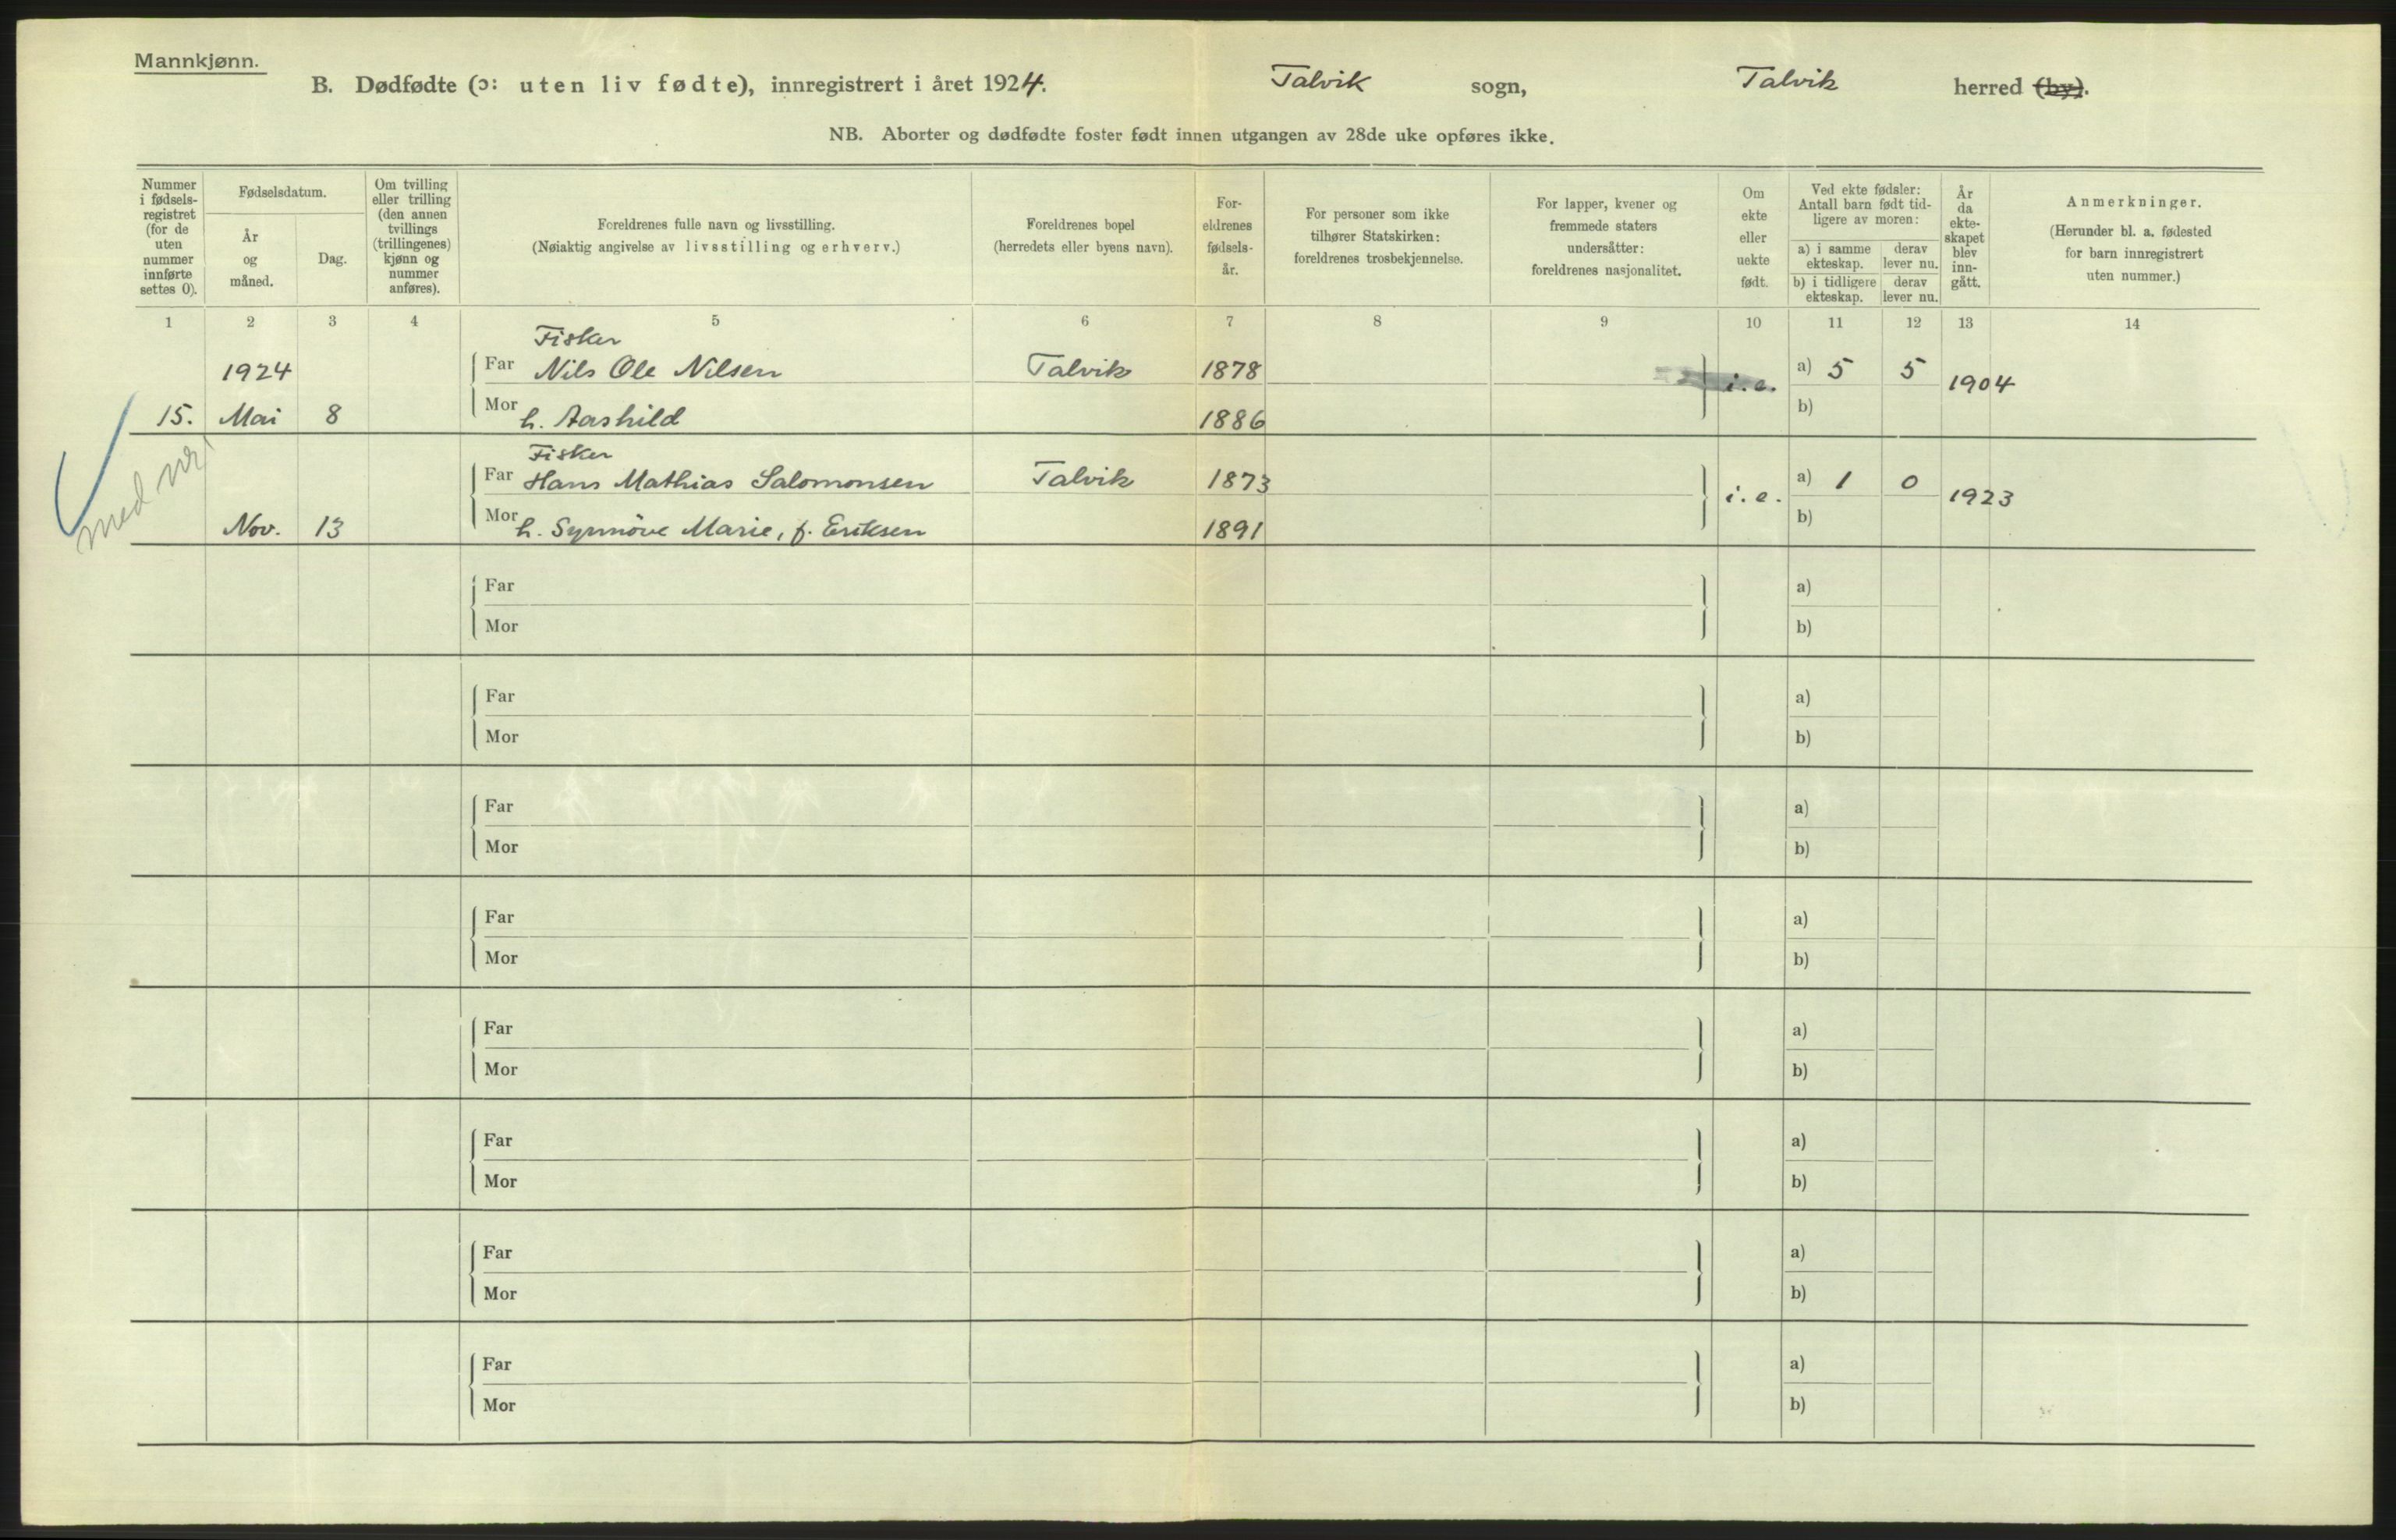 Mannkjønn.
B. Dødfødte (ɔ: uten liv fødte), innregistrert i året 1924. Talvik sogn, Talvik herred (by).
NB. Aborter og dødfødte foster født innen utgangen av 28de uke opføres ikke.
Nummer i fødsels-registret (for de uten nummer innførte settes 0).
Fødselsdatum.
År og måned.
Dag.
Om tvilling eller trilling (den annen tvillings (trillingenes) kjønn og nummer anføres).
Foreldrenes fulle navn og livsstilling.
(Nøiaktig angivelse av livsstilling og erhverv.)
Foreldrenes bopel
(herredets eller byens navn).
For-eldrenes fødsels-år.
For personer som ikke tilhører Statskirken: foreldrenes trosbekjennelse.
For lapper, kvener og fremmede staters undersåtter: foreldrenes nasjonalitet.
Om ekte eller uekte født.
Ved ekte fødsler: Antall barn født tid-ligere av moren:
a) i samme ekteskap.
derav lever nu.
b) i tidligere ekteskap.
derav lever nu.
År da ekte-skapet blev inn-gått.
Anmerkninger.
(Herunder bl. a. fødested for barn innregistrert uten nummer.)
1 2 3 4 5 6 7 8 9 10 11 12 13 14
Fisker
1924 Far Nils Ole Nilsen Talvik 1878 i. e. a) 5 5 1904
15. Mai 8 Mor h. Aashild 1886 b)
Fisker
Far Hans Mathias Salomonsen Talvik 1873 i. e. a) 1 0 1923
med nr
Nov. 13 Mor h. Synnöve Marie, f. Eriksen 1891 b)
Far a)
Mor b)
Far a)
Mor b)
Far a)
Mor b)
Far a)
Mor b)
Far a)
Mor b)
Far a)
Mor b)
Far a)
Mor b)
Far a)
Mor b)